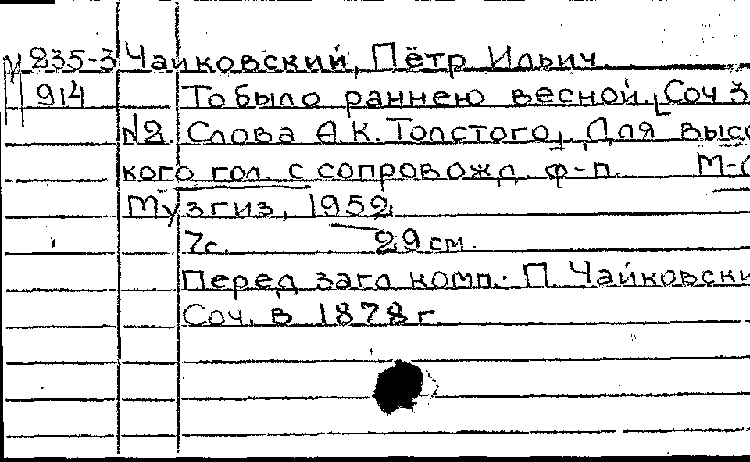 М 235-3 Чайковский, Пётр Ильич.
914 То было раннею весной. [Соч 3
№2. Слова А.К. Толстого]. Для высо
кого гол. с сопровожд. ф-п. М-
Музгиз, 1952
7с. 29 см.
Перед загл комп.: П. Чайковски
Соч. в 1878 г.